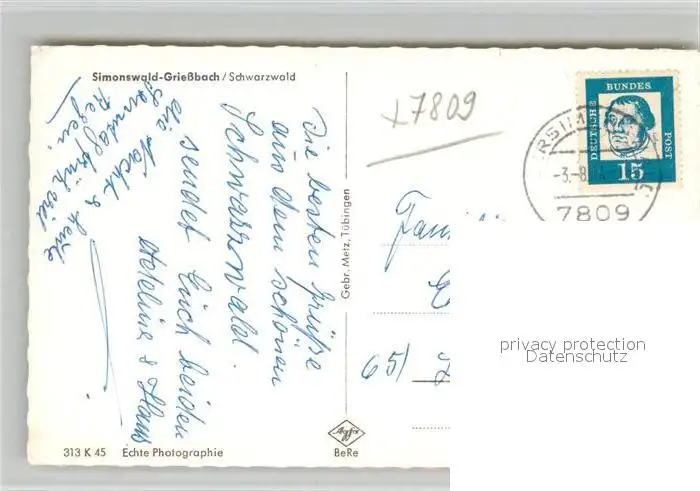 Simonswald-Grießbach / Schwarzwald
Die besten Grüße
aus dem schönen
Schwarzwald.
sendet Euch beiden
Adeline & Hans
Die Nacht & heute
Sonntag früh viel
Regen!
x7809
Gebr. Metz, Tübingen
DEUTSCHE
BUNDES
POST
15
-3.-8.
7809
65/
privacy protection
Datenschutz
Agfa
BeRe
313 K 45 Echte Photographie